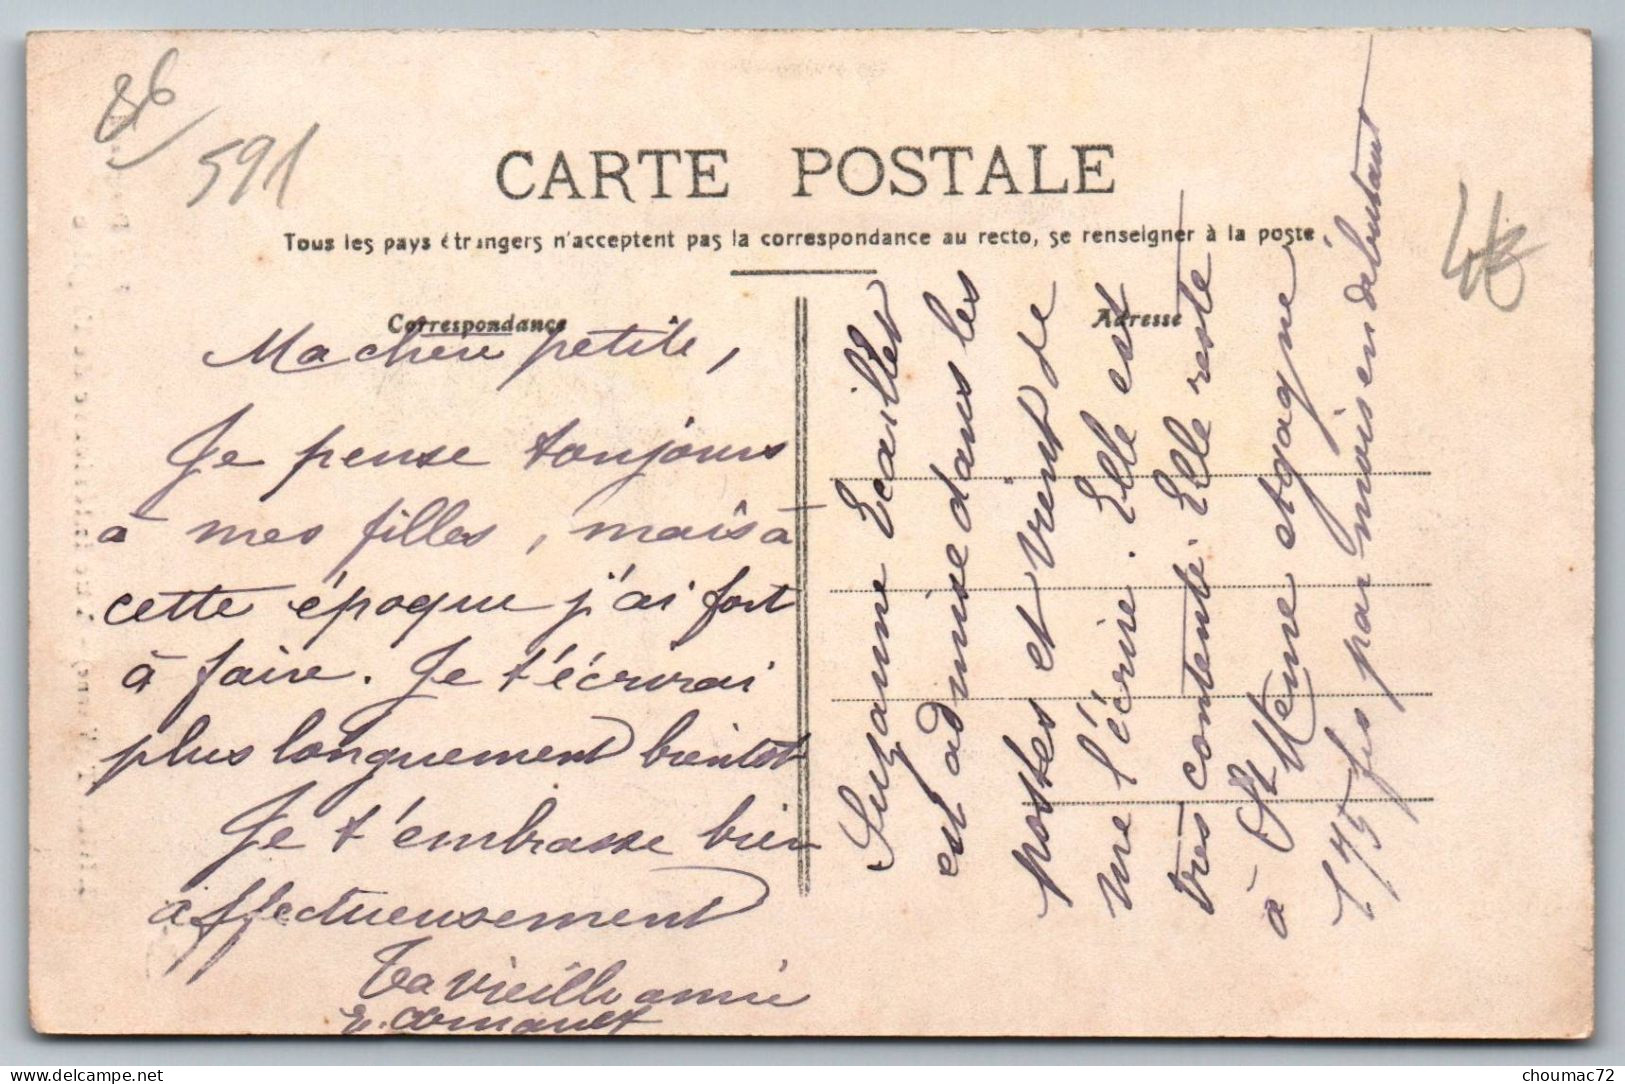 86
591
CARTE POSTALE
Tous les pays étrangers n'acceptent pas la correspondance au recto, se renseigner à la poste.
Correspondance
Adresse
Ma chère petite,
Je pense toujours
à mes filles, mais à
cette époque j'ai fort
à faire. Je t'écrirai
plus longuement bientôt
Je t'embrasse bien
affectueusement
Ta vieille amie
Suzanne Ecailles
est admise dans les
postes et vient de
me l'écrire. Elle est
très contente. Elle reste
à St Etienne et gagne
175 frs par mois en débutant
choumac72